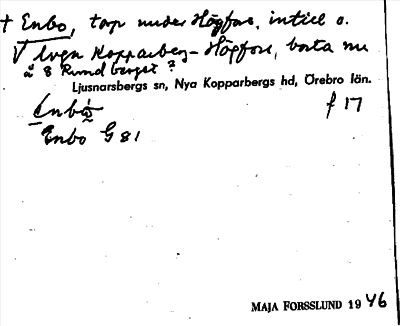 † Enbo, torp under Högfors, intill o.
V vägen Kopparberg-Högfors, borta nu
å 8 Rundberget?
Ljusnarsbergs sn, Nya Kopparbergs hd, Örebro län.
Enbo f 17
Enbo G 81
MAJA FORSSLUND 1946